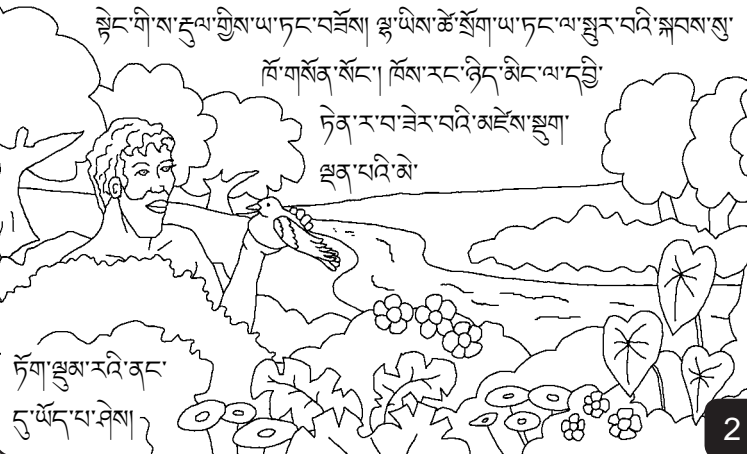 སྟེང་གི་ས་རྡུལ་གྱིས་ཡ་ཏང་བཟོས། ལྷ་ཡིས་ཚེ་སྲོག་ཡ་ཏང་ལ་སྤུར་བའི་སྐབས་སུ་
ཁོ་གསོན་སོང་། ཁོས་རང་ཉིད་ཨིང་ལ་དབྱི་
ཏེན་ར་བ་ཟེར་བའི་མཛེས་སྡུག་
ལྡན་པའི་མེ་
ཏོག་ལྡུམ་རའི་ནང་
དུ་ཡོད་པ་ཤེས།
2